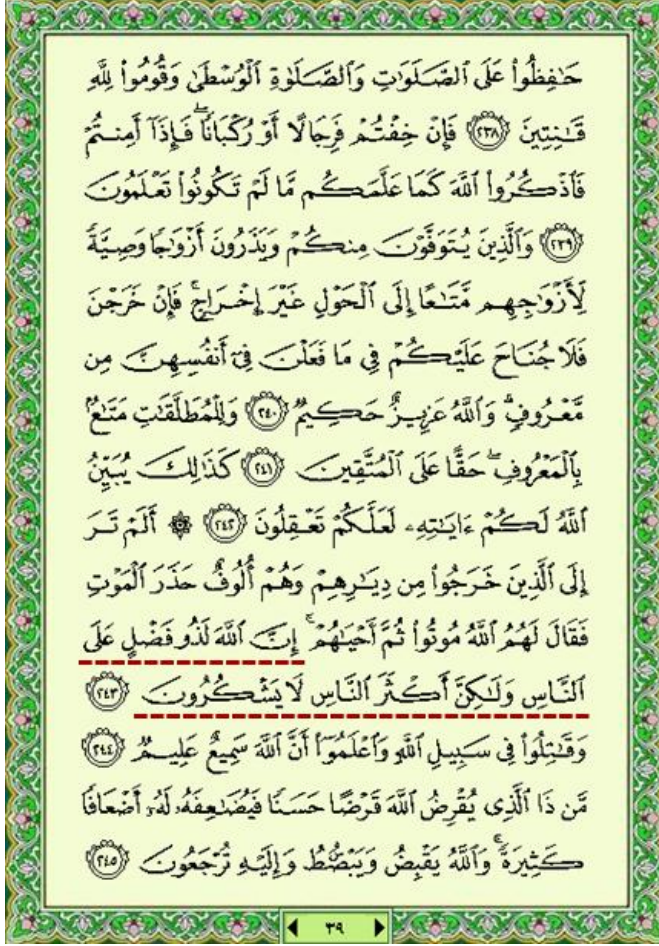 حَٰفِظُوا۟ عَلَى ٱلصَّلَوَٰتِ وَٱلصَّلَوٰةِ ٱلْوُسْطَىٰ وَقُومُوا۟ لِلَّهِ
قَٰنِتِينَ ﴿٢٣٨﴾ فَإِنْ خِفْتُمْ فَرِجَالًا أَوْ رُكْبَانًا ۖ فَإِذَآ أَمِنتُمْ
فَٱذْكُرُوا۟ ٱللَّهَ كَمَا عَلَّمَكُم مَّا لَمْ تَكُونُوا۟ تَعْلَمُونَ
﴿٢٣٩﴾ وَٱلَّذِينَ يُتَوَفَّوْنَ مِنكُمْ وَيَذَرُونَ أَزْوَٰجًا وَصِيَّةً
لِّأَزْوَٰجِهِم مَّتَٰعًا إِلَى ٱلْحَوْلِ غَيْرَ إِخْرَاجٍ ۚ فَإِنْ خَرَجْنَ
فَلَا جُنَاحَ عَلَيْكُمْ فِى مَا فَعَلْنَ فِىٓ أَنفُسِهِنَّ مِن
مَّعْرُوفٍ ۗ وَٱللَّهُ عَزِيزٌ حَكِيمٌ ﴿٢٤٠﴾ وَلِلْمُطَلَّقَٰتِ مَتَٰعٌۢ
بِٱلْمَعْرُوفِ ۖ حَقًّا عَلَى ٱلْمُتَّقِينَ ﴿٢٤١﴾ كَذَٰلِكَ يُبَيِّنُ
ٱللَّهُ لَكُمْ ءَايَٰتِهِۦ لَعَلَّكُمْ تَعْقِلُونَ ﴿٢٤٢﴾ ۞ أَلَمْ تَرَ
إِلَى ٱلَّذِينَ خَرَجُوا۟ مِن دِيَٰرِهِمْ وَهُمْ أُلُوفٌ حَذَرَ ٱلْمَوْتِ
فَقَالَ لَهُمُ ٱللَّهُ مُوتُوا۟ ثُمَّ أَحْيَٰهُمْ ۚ إِنَّ ٱللَّهَ لَذُو فَضْلٍ عَلَى
ٱلنَّاسِ وَلَٰكِنَّ أَكْثَرَ ٱلنَّاسِ لَا يَشْكُرُونَ ﴿٢٤٣﴾
وَقَٰتِلُوا۟ فِى سَبِيلِ ٱللَّهِ وَٱعْلَمُوٓا۟ أَنَّ ٱللَّهَ سَمِيعٌ عَلِيمٌ ﴿٢٤٤﴾
مَّن ذَا ٱلَّذِى يُقْرِضُ ٱللَّهَ قَرْضًا حَسَنًا فَيُضَٰعِفَهُۥ لَهُۥٓ أَضْعَافًا
كَثِيرَةً ۚ وَٱللَّهُ يَقْبِضُ وَيَبْصُۜطُ وَإِلَيْهِ تُرْجَعُونَ ﴿٢٤٥﴾
٣٩